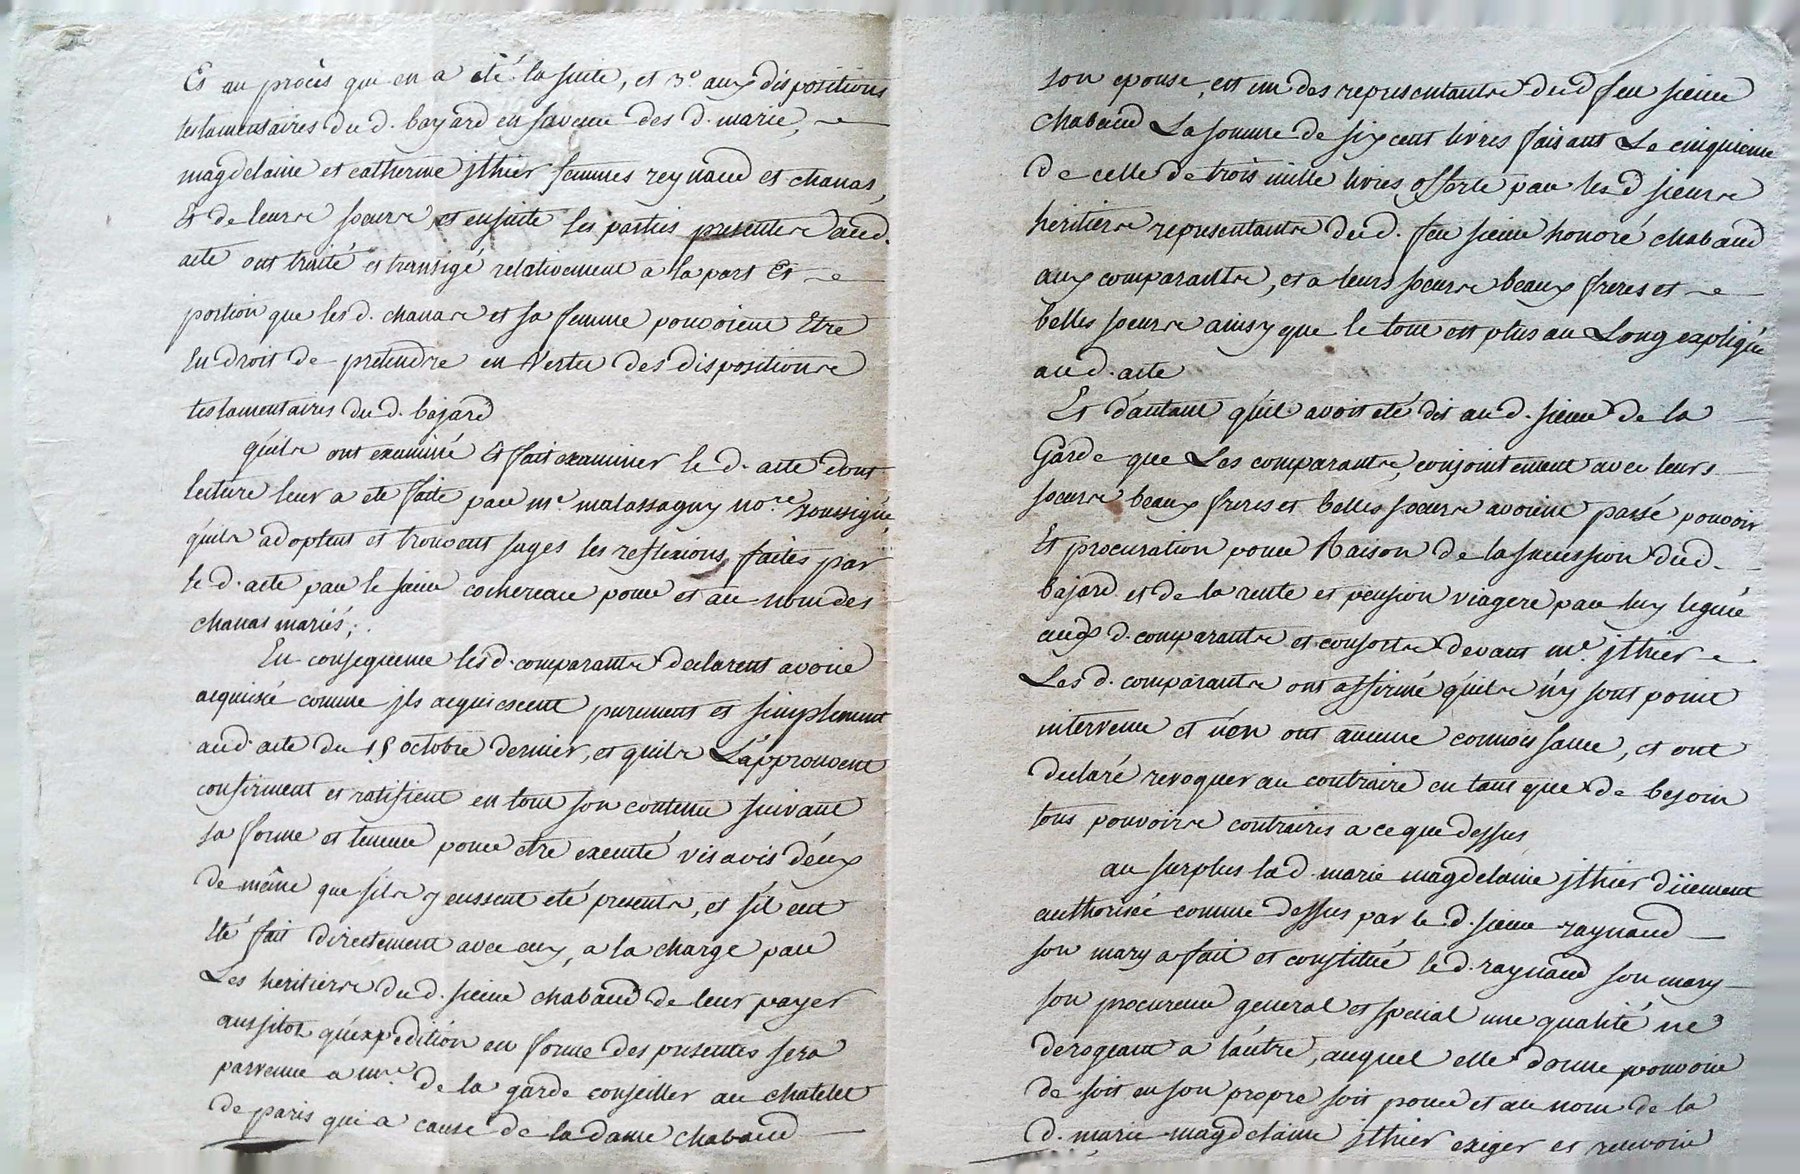 Et au procès qui en a eté la suite, et 3° aux dispositions
testamentaires du d. bayard en faveur des d. marie,
magdelaine et catherine jthier femmes reynaud et chanas,
Et de leurs soeurs, et ensuite les parties presentes aud.
acte ont traité et transigé relativement a la part Et
portion que les d. chanas et sa femme pouvoient Etre
En droit de pretendre en Vertu des dispositions
testamentaires du d. bajard
qu'ils ont examiné Et fait examiner le d. acte dont
lecture leur a eté faite par me. malassagny nore. soussigné,
qu'ils adoptent et trouvent sages les reflexions faites par
le d. acte par le sieur cochereau pour et au nom des
chanas mariés;
En consequence les d. comparants declarent avoir
acquiescé comme jls acquiescent purement et simplement
aud. acte du 15 octobre dernier, et quils L'approuvent
confirment et ratifient en tout son contenu suivant
sa forme et teneur pour etre executé vis avis d'eux
de même que s'ils y eussent eté presents, et s'il eut
Eté fait directement avec eux, a la charge par
Les heritiers du d. sieur chabaud de leur payer
aussitot qu'expedition en forme des presentes sera
parvenue a mr. de la garde conseiller au chatelet
de paris qui a cause de la dame chabaud
son epouse, est un des representants du d feu sieur
chabaud La somme de six cent livres faisant Le cinquieme
de celle de trois mille livres offerte par les d sieurs
heritiers representants du d. feu sieur honoré chabaud
aux comparants, et a leurs soeurs beaux freres et
belles soeurs ainsy que le tout est plus au Long expliqué
au d. acte
Et d'autant qu'il avoit eté dit au d. sieur de la
Garde que Les comparants, conjointement avec leurs
soeurs beaux freres et belles soeurs avoient passé pouvoir
Et procuration pour Raison de la succession du d.
bajard et de la rente et pension viagere par luy leguée
aux d. comparants et consorts devant me. jthier
Les d. comparants ont affirmé qu'ils n'y sont point
intervenu et n'en ont aucune connoissance, et ont
declaré revoquer au contraire en tant que de besoin
tous pouvoirs contraires a ce que dessus
au surplus la d. marie magdelaine jthier düement
authorisée comme dessus par le d. sieur raynaud
son mary a fait et constitué le d. raynaud son mary
son procureur general et special une qualité ne
derogeant a l'autre, auquel elle donne pouvoir
de soit en son propre soit pour et au nom de la
d. marie magdelaine jthier exiger et recevoir